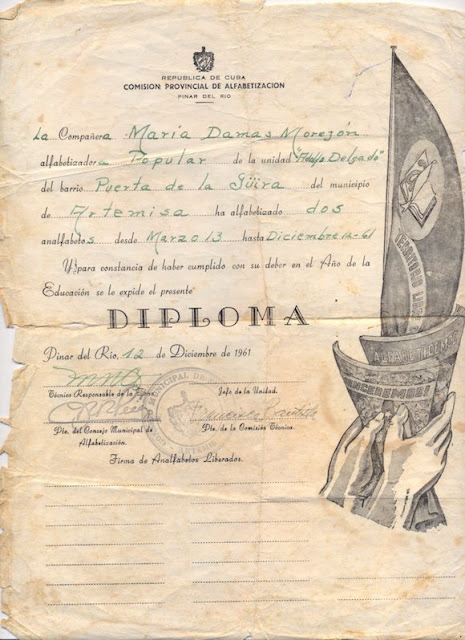 REPUBLICA DE CUBA
COMISION PROVINCIAL DE ALFABETIZACION
PINAR DEL RIO
La Compañera María Damas Morejón
alfabetizadora Popular de la unidad "Fdefo Delgado"
del barrio Puerta de la Güira del municipio
de Artemisa ha alfabetizado dos
analfabetos desde Marzo 13 hasta Diciembre 12-61
Y para constancia de haber cumplido con su deber en el Año de la
Educación se le expide el presente
DIPLOMA
Pinar del Rio, 12 de Diciembre de 1961
Técnico Responsable de la Zona
Jefe de la Unidad.
Pte. del Consejo Municipal de
Alfabetización.
Pte. de la Comisión Técnica.
Firma de Analfabetos Liberados.
TERRITORIO LIBRE
ALFABETICEMOS
VENCEREMOS!